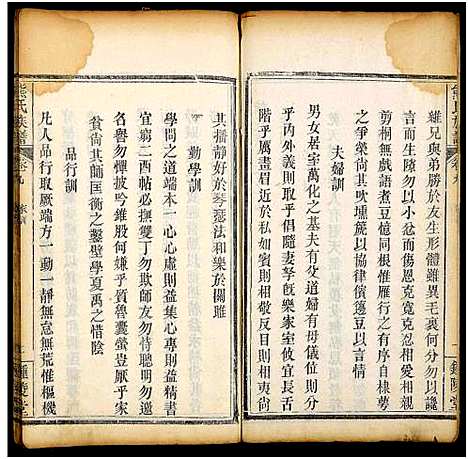 雖兄與弟勝於友生形體雖異毛裏何分勿以讒
言勿以淬勿以小忿而傷恩克寬克忍相與有成
剪桐無戲語煮豆憶同根惟雁行之有序自棣萼
之爭榮尚其吹壎篪以協律儐籩豆以言情
夫婦訓
男女居室萬化之基夫有夊道婦有母儀位則分
乎內外義則取乎倡隨妻孥旣樂家室攸宜勿反
目以貽譏勿私奴而瀆則克敬克愛無
階乎厲
其播靜好於琴瑟法和樂於關雎
勤學訓
學問之道端本一心心虛則益集心專則益精書
宜窮二酉帖必撫雙丁勿欺師友勿恃聰明勿邇
名譽勿憚披吟維殷何嫌乎質魯囊螢豈厭乎家
貧尚其師匡衡之鑿壁學夏禹之惜陰
品行訓
凡人品行取厥端方一動一靜無怠無荒惟樞機
熊氏族譜
卷九
家訓
一
鍾陵堂
熊氏族譜
卷九
鍾陵堂